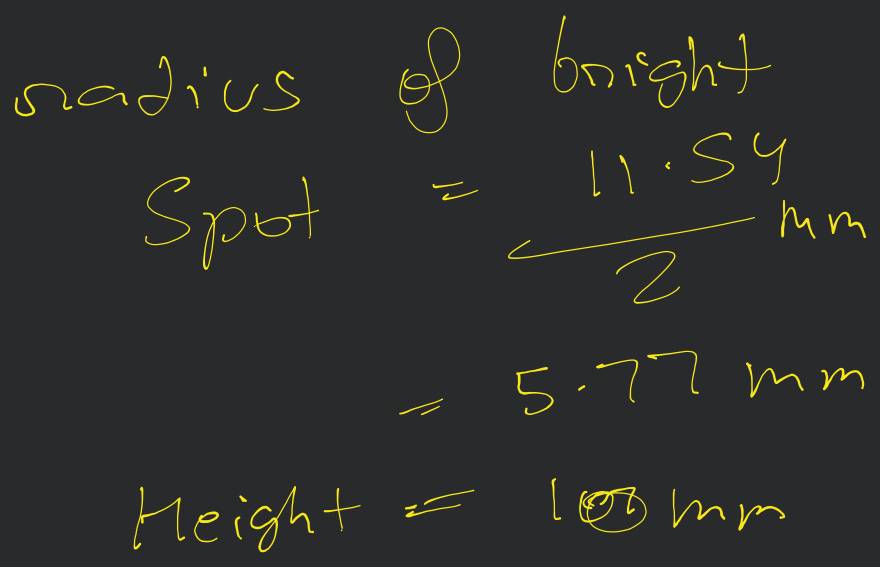 radius of bright
Spot = 11.54 / 2 mm
= 5.77 mm
Height = mm